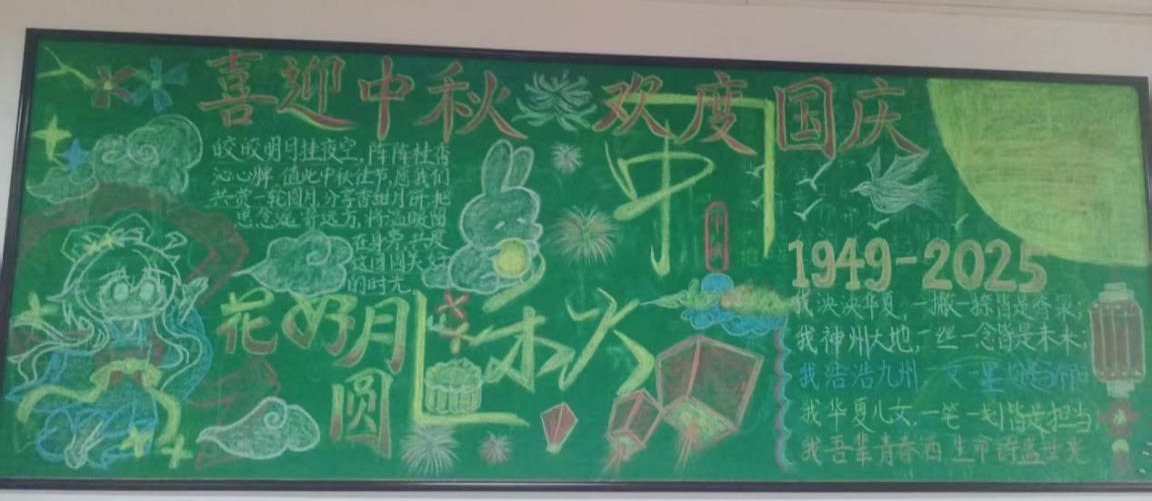 喜迎中秋 欢度国庆
皎皎明月挂夜空,阵阵桂香
沁心脾 值此中秋佳节,愿我们
共赏一轮圆月,分享香甜月饼,把
思念遥寄远方,将温暖留
在身旁,共度
这团圆美好
的时光
中秋
花好月
圆
1949-2025
我泱泱华夏,一撇一捺皆是脊梁,
我神州大地,一丝一念皆是未来,
我浩浩九州,一文一墨
我华夏儿女,一笔一划皆是担当
我吾辈青春洒生命